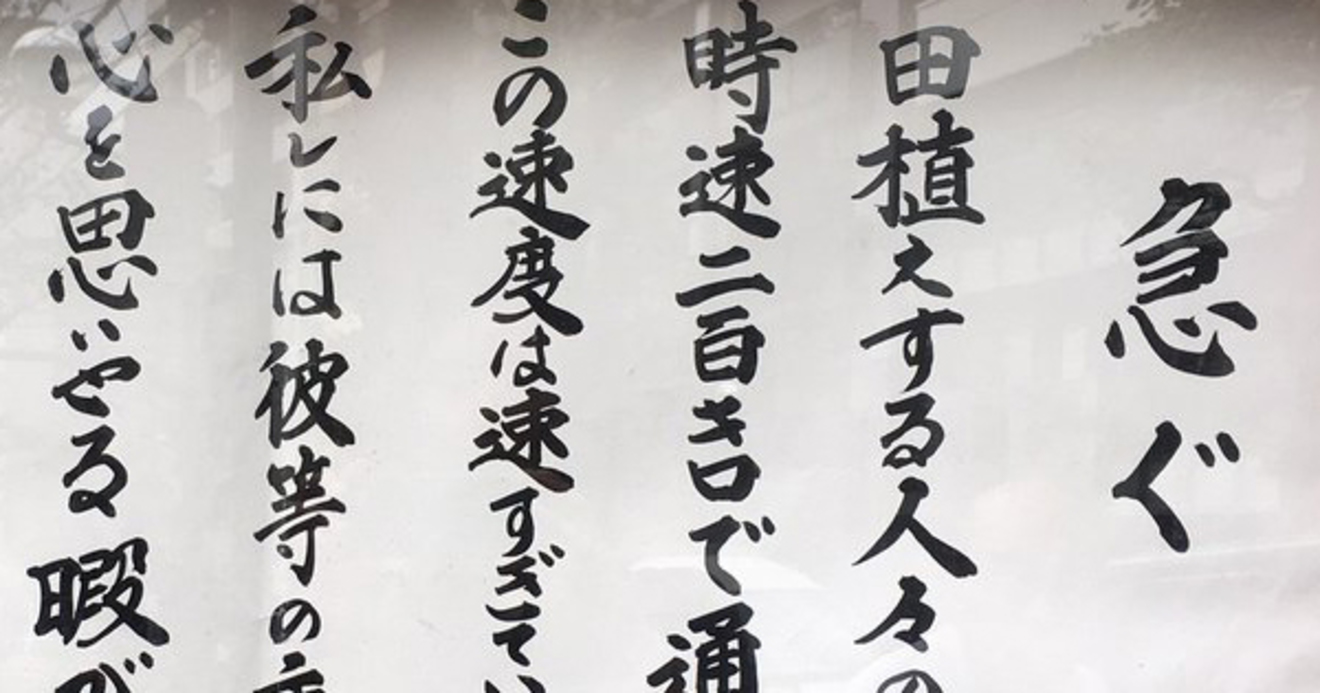 急ぐ
田植えする人々の
時速二百キロで通
この速度は速すぎてい
私しには彼等の
心を思いやる暇が